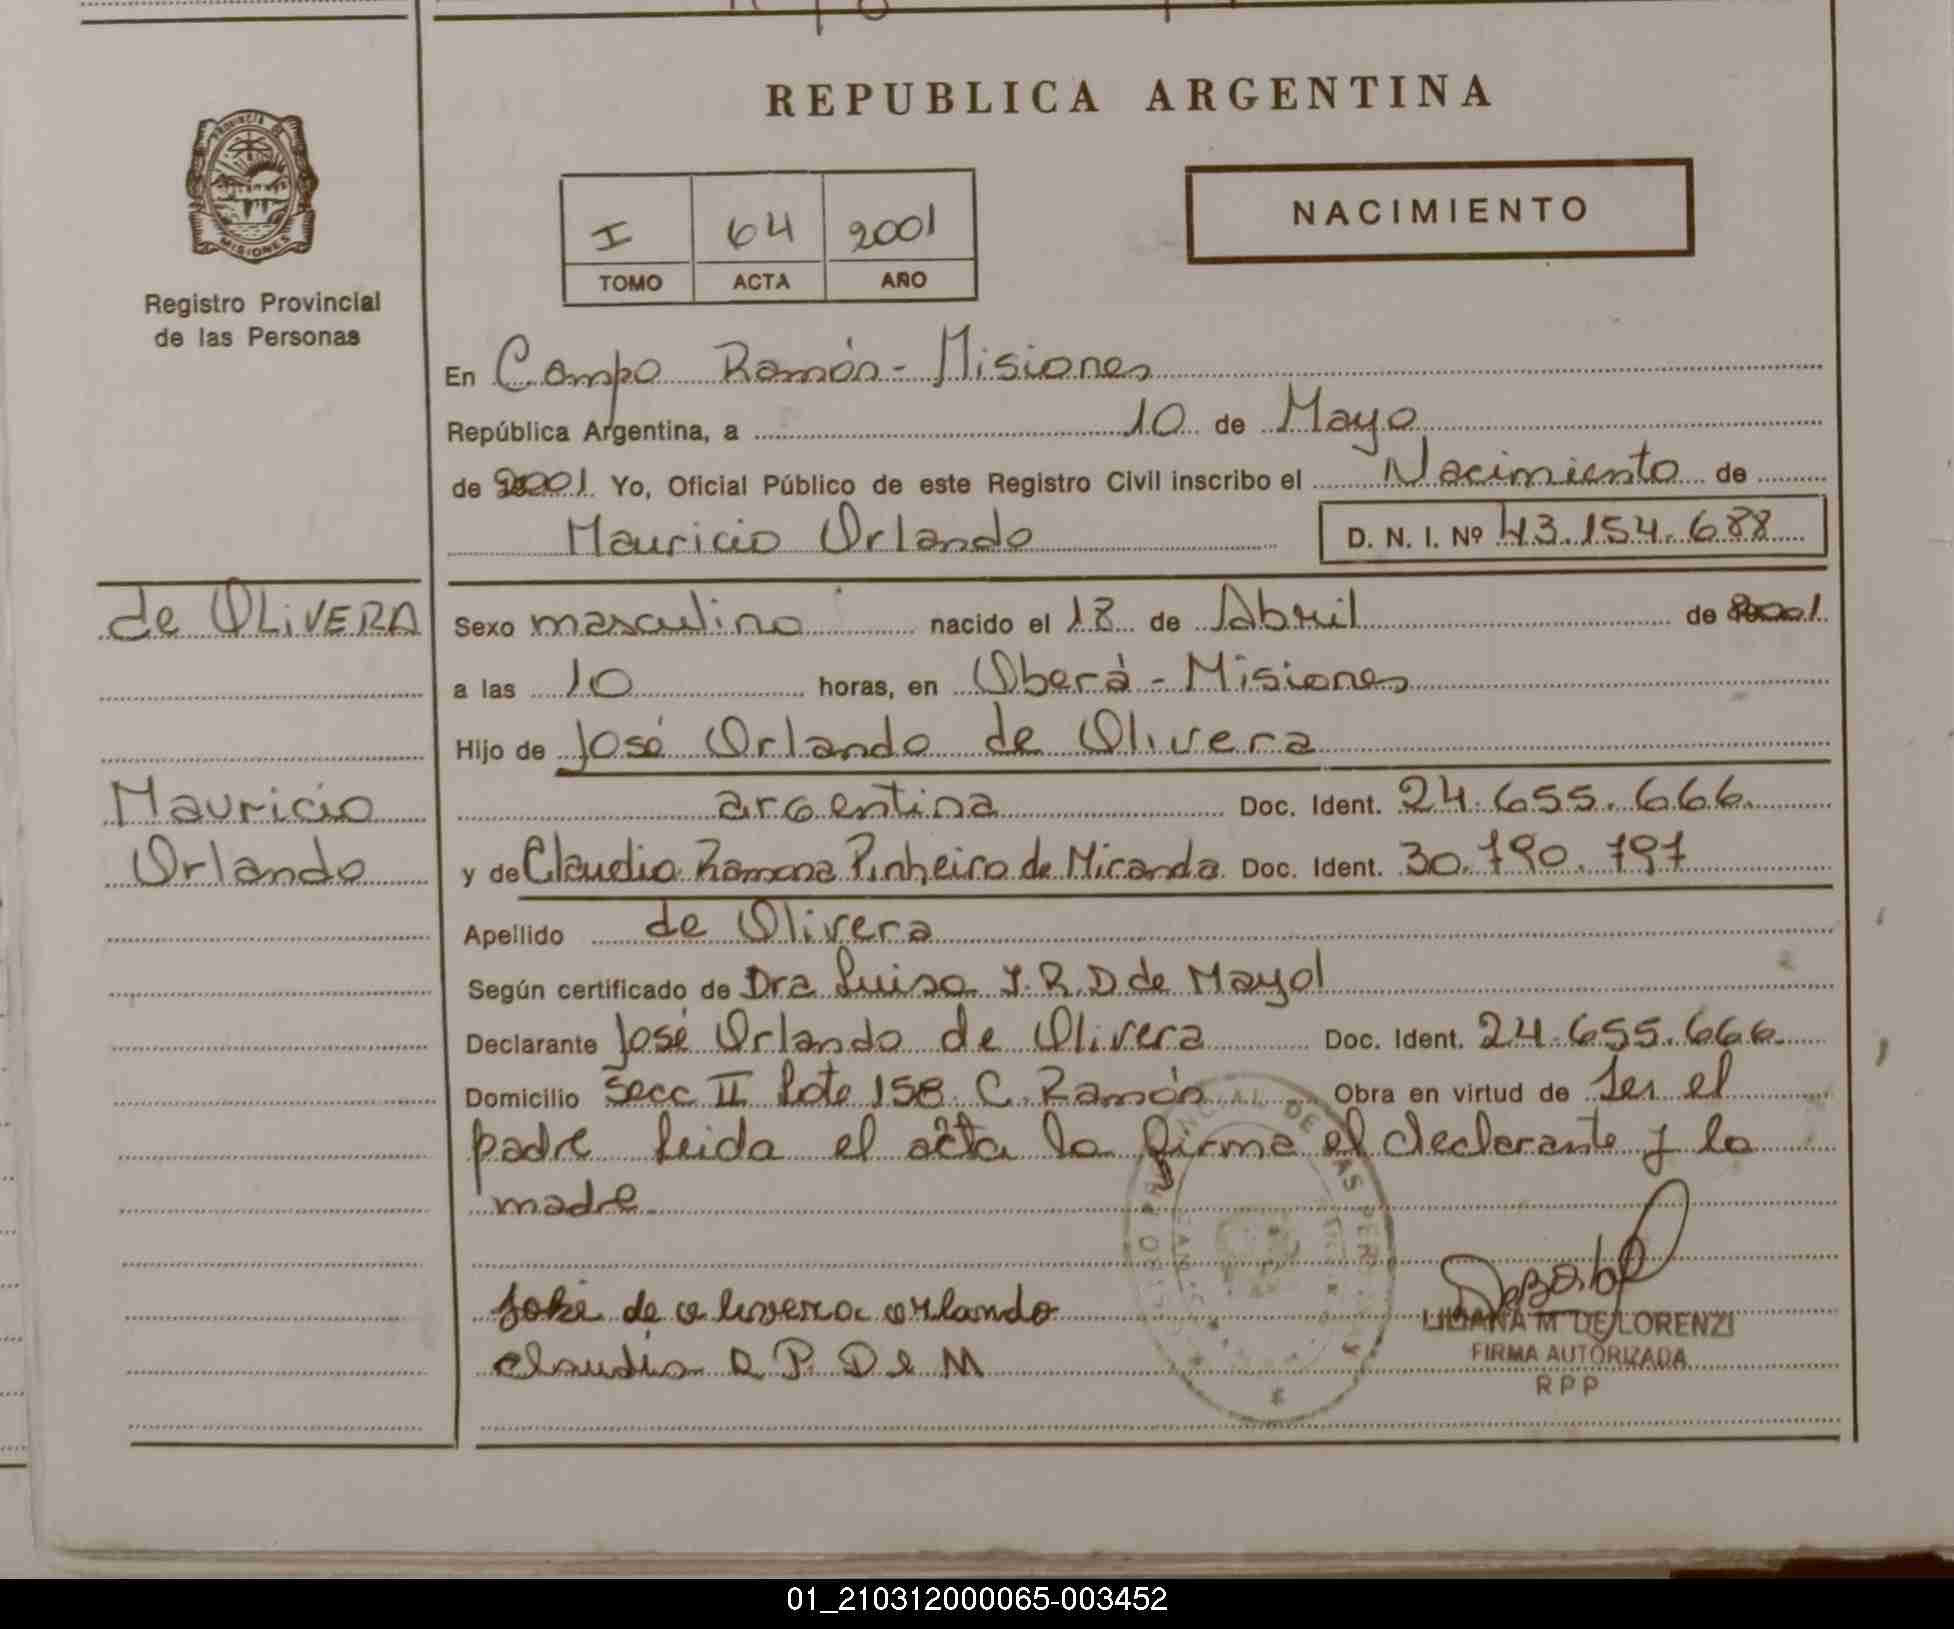 REPUBLICA ARGENTINA
PROVINCIA DE
MISIONES
Registro Provincial
de las Personas
I 64 2001
TOMO ACTA AÑO
NACIMIENTO
En Campo Ramón - Misiones
República Argentina, a 10 de Mayo
de 2001 Yo, Oficial Público de este Registro Civil inscribo el Nacimiento de
Mauricio Orlando D. N. I. Nº 43.154.688
de OLiVERA
Mauricio
Orlando
Sexo masculino nacido el 18 de Abril de 2001
a las 10 horas, en Oberá - Misiones
Hijo de José Orlando de Olivera
argentina Doc. Ident. 24.655.666
y de Claudia Ramona Pinheiro de Miranda Doc. Ident. 30.790.797
Apellido de Olivera
Según certificado de Dra Luisa Y. R. D de Mayol
Declarante José Orlando de Olivera Doc. Ident. 24.655.666
Domicilio Secc II Lote 158 C. Ramón Obra en virtud de Ser el
padre Leida el acta la firma el declarante y la
madre
José de olivera orlando
claudia R P. D e M
LILIANA M DE LORENZI
FIRMA AUTORIZADA
R P P
01_210312000065-003452